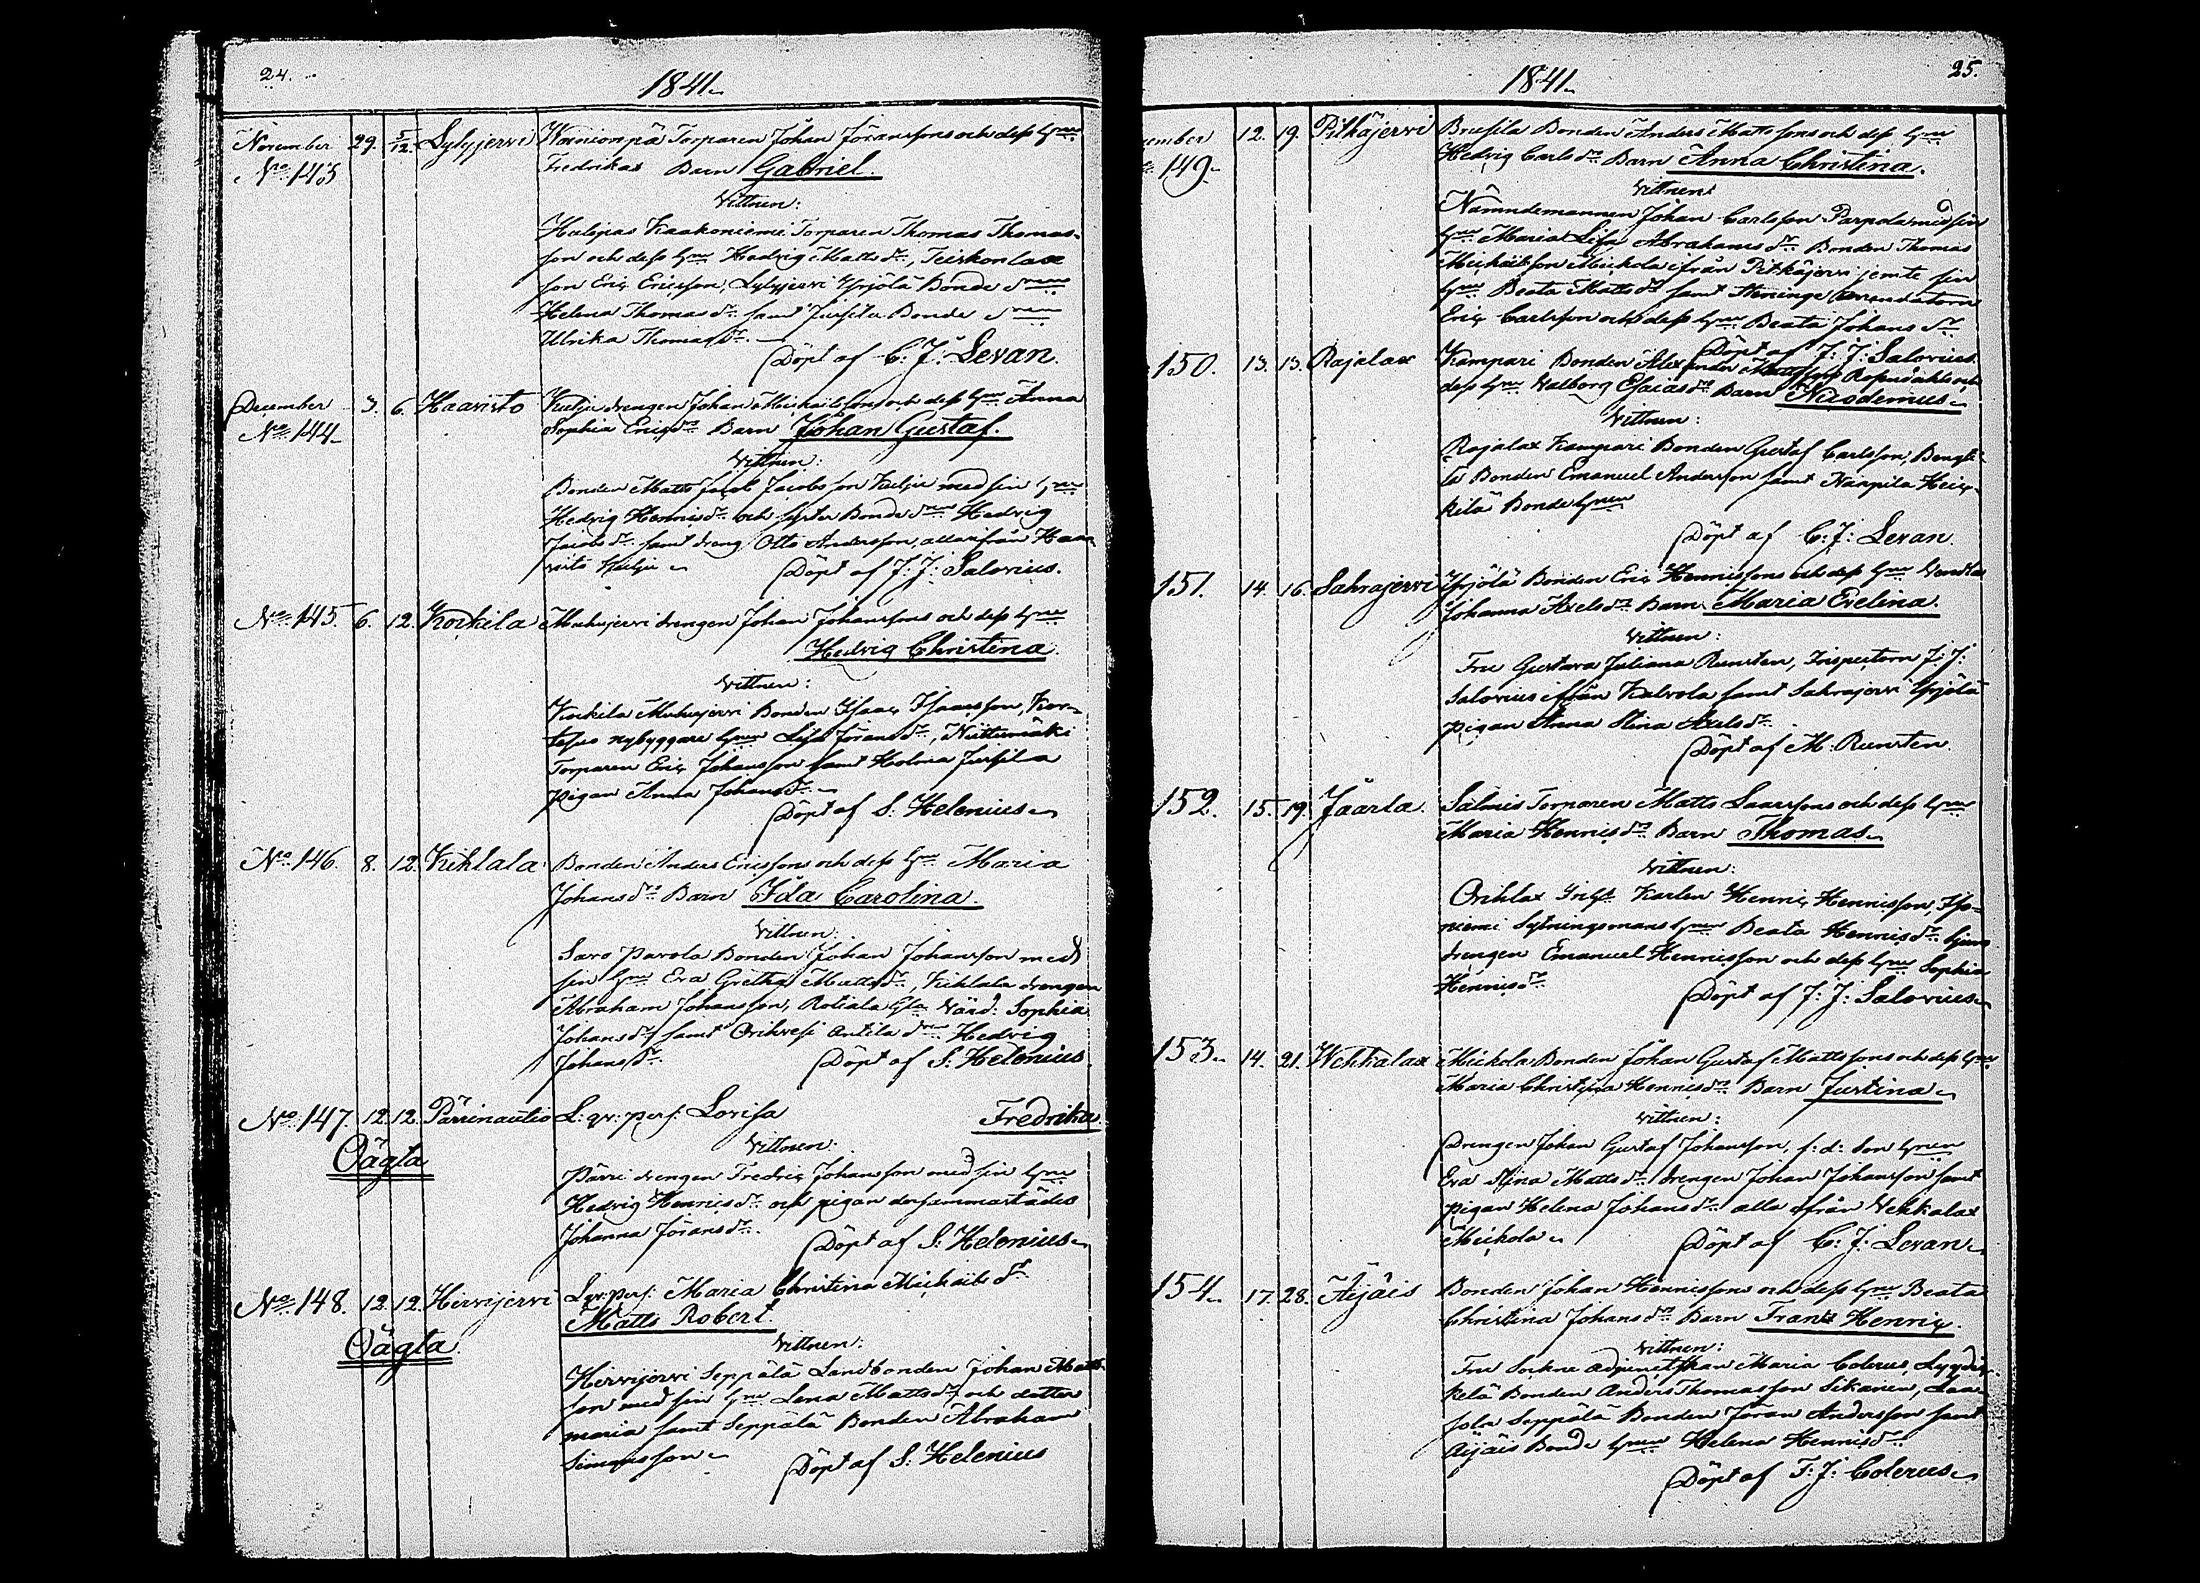 24.
1841.
November 29. 5/12. Lylyjervi Torparen Johan Göranssons och dess Hru
No 143 Fredrikas Barn Gabriel.
Vittnen:
Torparen Thomas Thomas-
son och dess Hru Hedvig Matts dr,
son Eric Ericsson, Lylyjervi Yrjölä Bonde
Helena Thomas dr samt Jussila Bonde
Ulrika Thomas dr.
Döpt af C: J: Levan.
December 3. 6. Haavisto drengen Johan Michaelssons och dess Hru Anna
No 144 Sophia Erics dr Barn Johan Gustaf.
Vittnen:
Bonden Matts Jacobsson med sin Hru
Hedvig Henrics dr och syster Bonde Hedvig
Jacobs dr samt dreng Otto Andersson, alla ifrån Haa-
visto
Döpt af J: J: Salovius.
No 145. 6. 12. Korkila drengen Johan Johanssons och dess Hru
Hedvig Christina.
Vittnen:
Bonden Isaac Isacsson,
nybyggare Hrun Lisa Görans dr, Niittumäki
Torparen Eric Johansson samt Jussila
pigan Anna Johans dr
Döpt af S: Helenius
No 146. 8. 12. Kuhlala Bonden Anders Ericssons och dess Hru Maria
Johans dr Barn Ida Carolina.
Vittnen:
Saro Parola Bonden Johan Johansson med
sin Hru Eva Gretha Matts dr, Kuhlala drengen
Abraham Johansson, Rotiala Sophia
Johans dr samt Orihvesi Antila Hedvig
Johans dr.
Döpt af S: Helenius.
No 147. 12. 12. Pärrinautio L: qv: pers: Lovisa Fredrika.
Oägta
Vittnen:
Pärri drengen Fredric Johansson med sin Hru
Hedvig Henrics dr och pigan dersammastädes
Johanna Görans dr.
Döpt af S: Helenius
No 148. 12. 12. Hirvijervi L: qv: pers: Maria Christina Michaels dr
Matts Robert.
Oägta
Vittnen:
Hirvijervi Seppälä Landbonden Johan Matts-
son med sin Hru Lena Matts dr och dotter
Maria samt Seppälä Bonden Abraham
Simonsson
Döpt af S: Helenius
25.
1841.
ember 12. 19. Pitkäjervi Brusila Bonden Anders Mattssons och dess Hru
149. Hedvig Carls dr Barn Anna Christina.
Vittnen:
Nämndemannen Johan Carlsson Parpola med sin
Hru Maria Lisa Abrahams dr Bonden Thomas
Michaelsson Mickola ifrån Pitkäjervi jemte sin
Hru Beata Matts dr samt Heninge Arrendatorn
Eric Carlsson och dess Hru Beata Johans dr
Döpt af J: J: Salovius
150. 13. 13. Rajalax Kampari Bonden Alexander Rosendahls och
dess Hru Valborg Esaias dr Barn Nicodemus
Vittnen:
Rajalax Kampari Bonden Gustaf Carlsson, Bengt-
lä Bonden Emanuel Andersson samt Närpilä Heic-
kilä Bonde Hrun
Döpt af C: J: Levan.
151. 14. 16. Sahrajervi Yrjölä Bonden Eric Henricssons och dess Hru Vendla
Johanna Axels dr Barn Maria Evelina.
Vittnen:
Fru Gustava Juliana Runsten, Inspectorn J: J:
Salovius ifrån Kalvola samt Sahrajervi Yrjölä
pigan Anna Stina Axels dr.
Döpt af M: Runsten.
152. 15. 19. Jaarla. Salmis Torparen Matts Larssons och dess Hru
Maria Henrics dr Barn Thomas
Vittnen:
Karlen Henric Henricsson,
niemi Sytningsmans Hrun Beata Henrics dr
drengen Emanuel Henricsson och dess Hru Sophia
Henrics dr
Döpt af J: J: Salovius
153. 14. 21. Wehkalax Mickola Bonden Johan Gustaf Mattssons och dess Hru
Maria Christina Henrics dr Barn Justina
Vittnen:
Drengen Johan Gustaf Johansson, f: d: Hrun
Eva Stina Matts dr drengen Johan Johansson samt
pigan Helena Johans dr alla ifrån Vehkalax
Mickola
Döpt af C: J: Levan
154. 17. 28. Äijäis Bonden Johan Henricssons och dess Hru Beata
Christina Johans dr Barn Frans Henric.
Vittnen:
Fru Sockne Adjunctskan Maria Colerus,
kelä Bonden Anders Thomasson Sikanen,
Seppälä Bonden Göran Andersson samt
Äijäis Bonde Hrun Helena Henrics dr
Döpt af F: J: Colerus